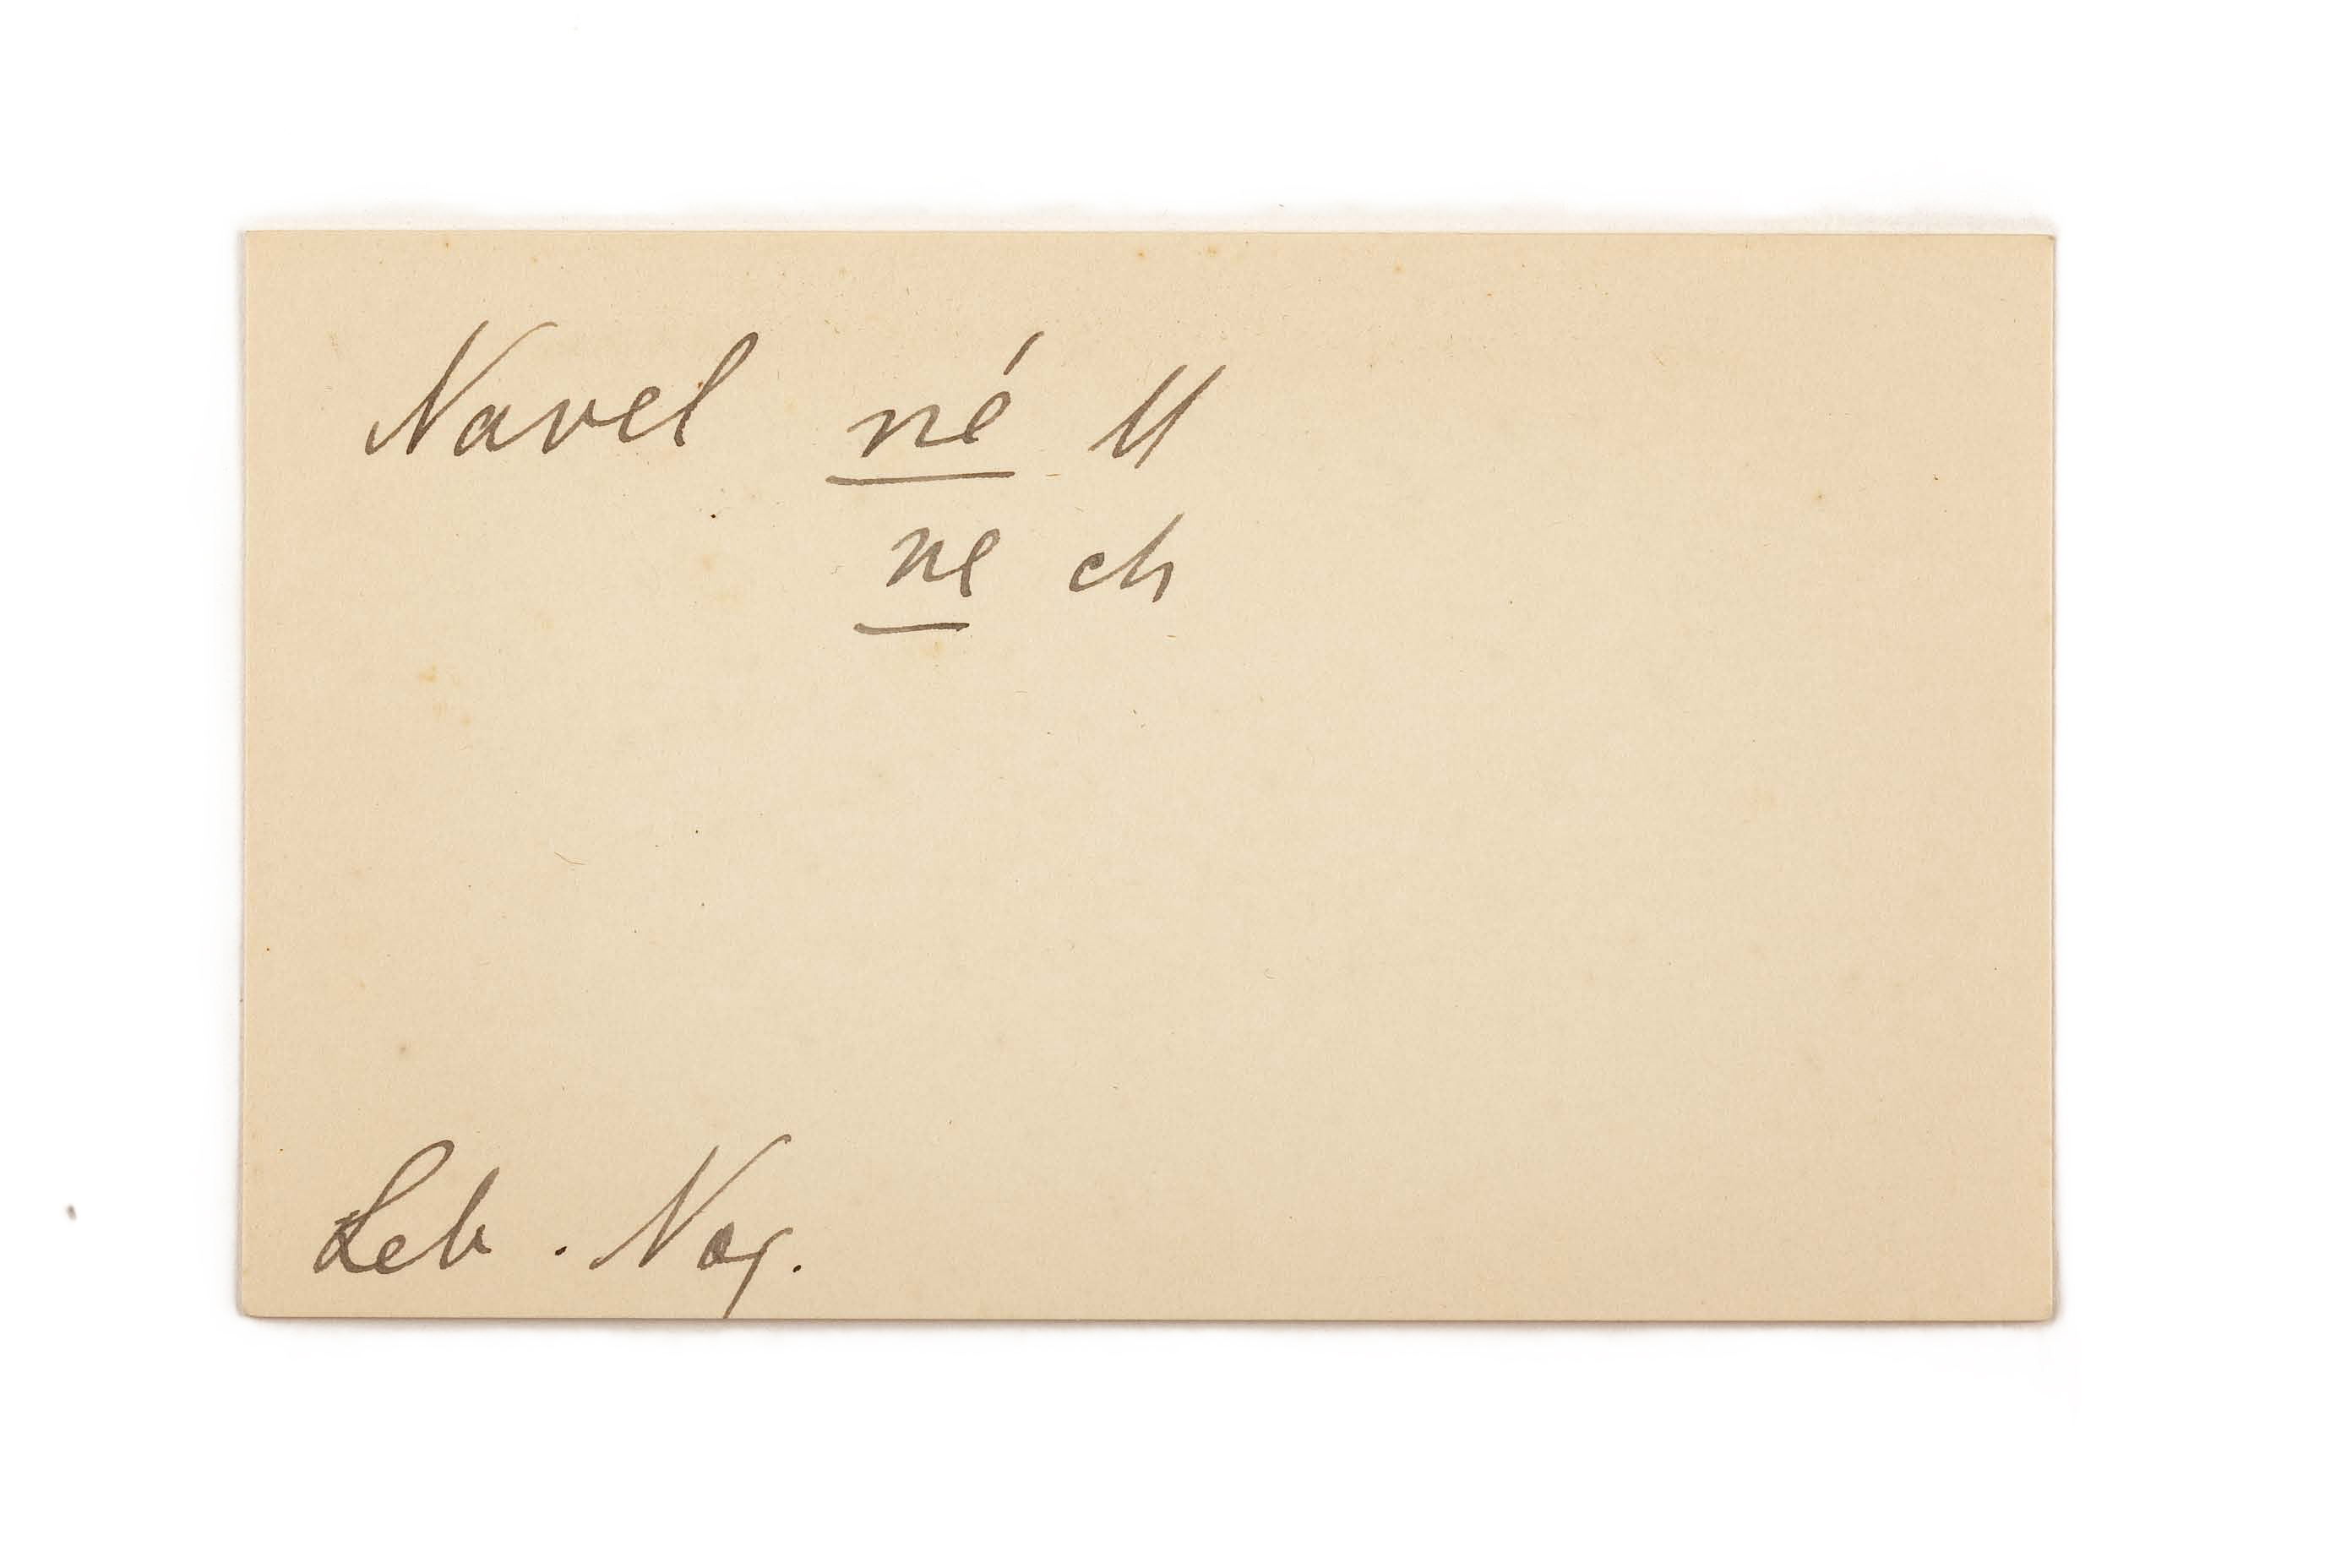 Navel né ll
ne ch
Leb. Nog.